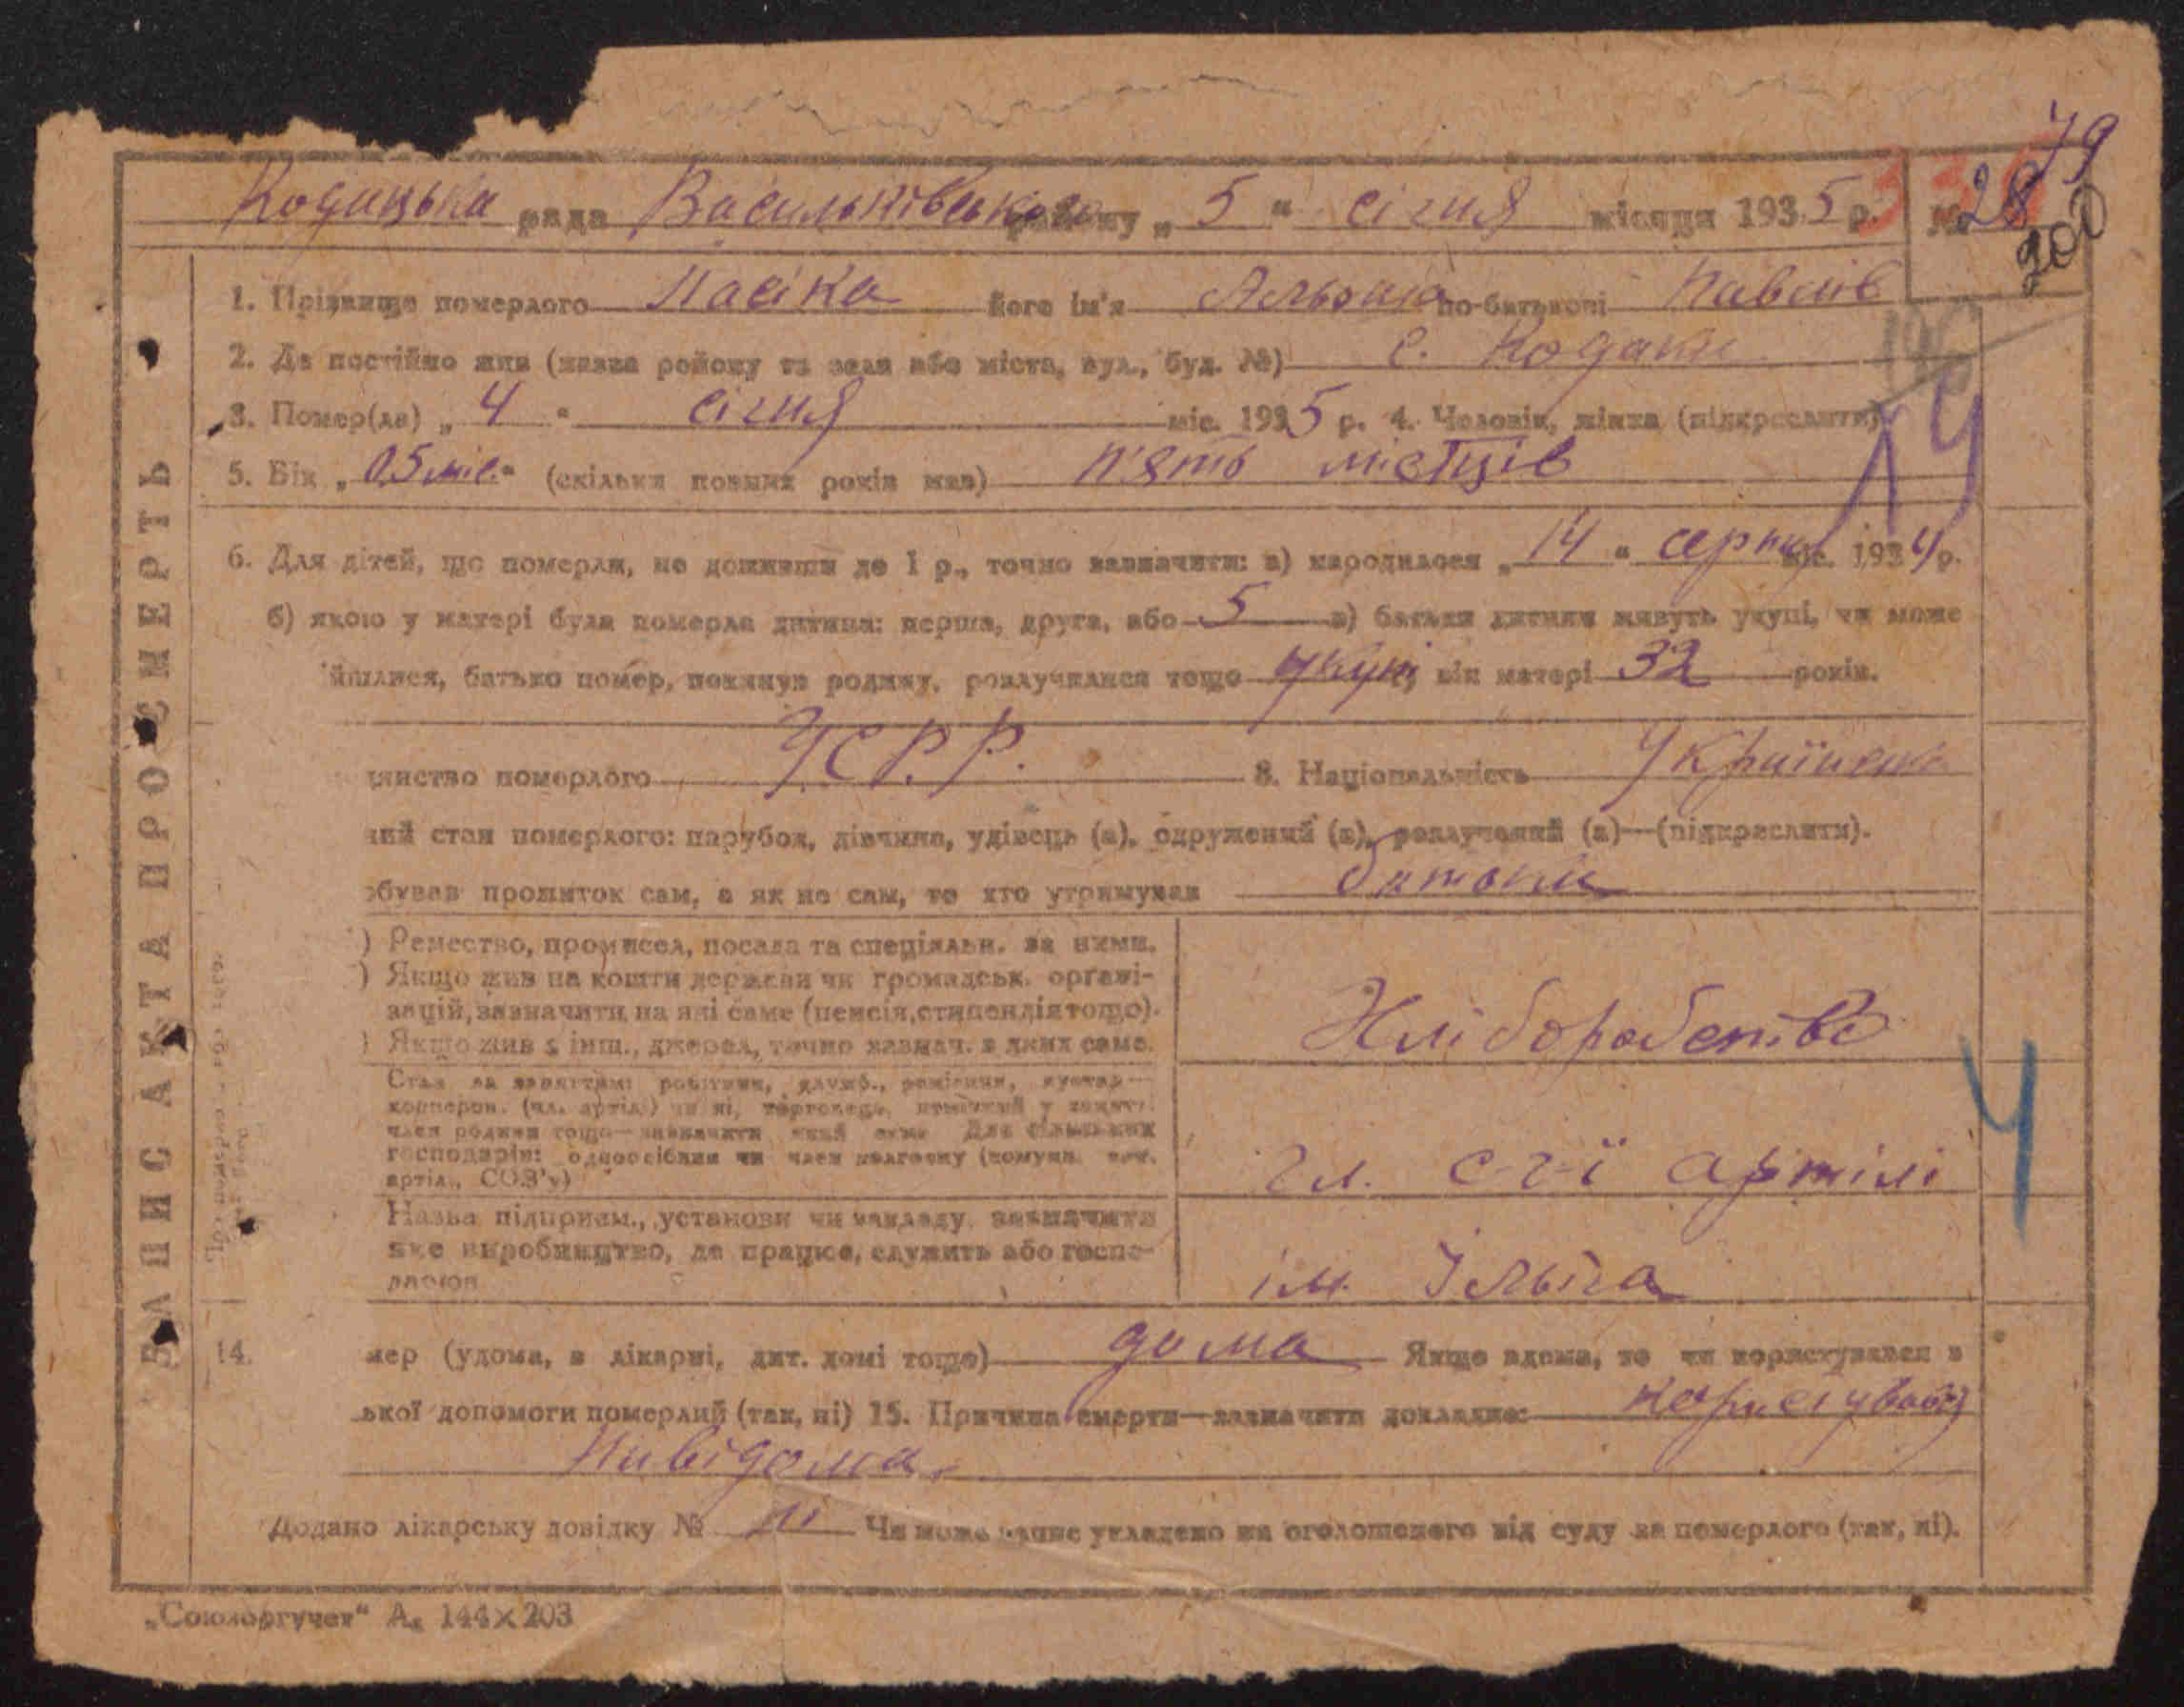 79
Кодацька рада Васильківського району „ 5 " січня місяця 1935 р. № 28
200
1. Прізвище померлого Пасіка його ім'я по-батькові Павлів
2. Де постійно жив (назва району та села або міста, вул., буд. №) с. Кодаки
3. Помер(ла) „ 4 " січня міс. 1935 р. 4. Чоловік, жінка (підкреслити)
5. Вік „ 05 міс. " (скільки повних років мав) п'ять місяців
14
6. Для дітей, що померли, не доживши до 1 р., точно зазначити: а) народилося „ 14 " серпня міс. 1934 р.
б) якою у матері була померла дитина: перша, друга, або 5 в) батьки дитини живуть укупі, чи може
йшлися, батько помер, покинув родину, розлучилися тощо укупі, вік матері 32 років.
янство померлого УСРР. 8. Національність Українець
ний стан померлого: парубок, дівчина, удівець (а), одружений (а), розлучений (а)—(підкреслити).
обував прожиток сам, а як не сам, то хто утримував батьки
) Ремество, промисел, посада та спеціяльн. за ними.
) Якщо жив на кошти держави чи громадськ. органі-
зацій, зазначити, на які саме (пенсія, стипендія тощо).
) Якщо жив з інш., джерел, точно зазнач. з яких саме.
Хліборобство
член родини тощо—зазначити який саме Для сільських
господарів: одноосібник чи член колгоспу (комуни,
артіл., СОЗ'у)
чл. с-г-ї артілі
4
Назва підприєм., установи чи закладу, зазначити
яке виробництво, де працює, служить або госпо-
ім. Ілліча
14. мер (удома, в лікарні, дит. домі тощо) дома Якщо вдома, то чи користувався з
ької допомоги померлий (так, ні) 15. Причина смерти—зазначити докладно: користувався
Нивідома.
Додано лікарську довідку № ні Чи може запис укладено на оголошеного від суду за померлого (так, ні).
ЗАПИС АКТА ПРО СМЕРТЬ
„Союзоргучет" А₆ 144×203